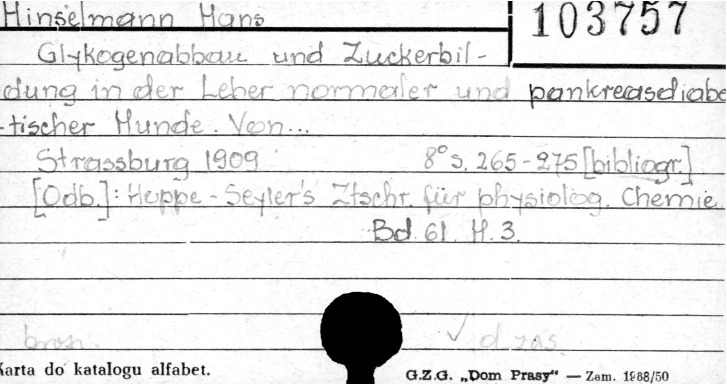 Hinselmann Hans
103757
Glykogenabbau und Zuckerbil-
dung in der Leber normaler und pankreasdiabe
-tischer Hunde. Von...
Strassburg 1909 8° s. 265-275 [bibliogr.]
[Odb.]: Hoppe-Seyler's Ztschr. für physiolog. Chemie
Bd. 61. H. 3.
brosz. d. zas.
Karta do katalogu alfabet.
G.Z.G. „Dom Prasy“ — Zam. 1988/50